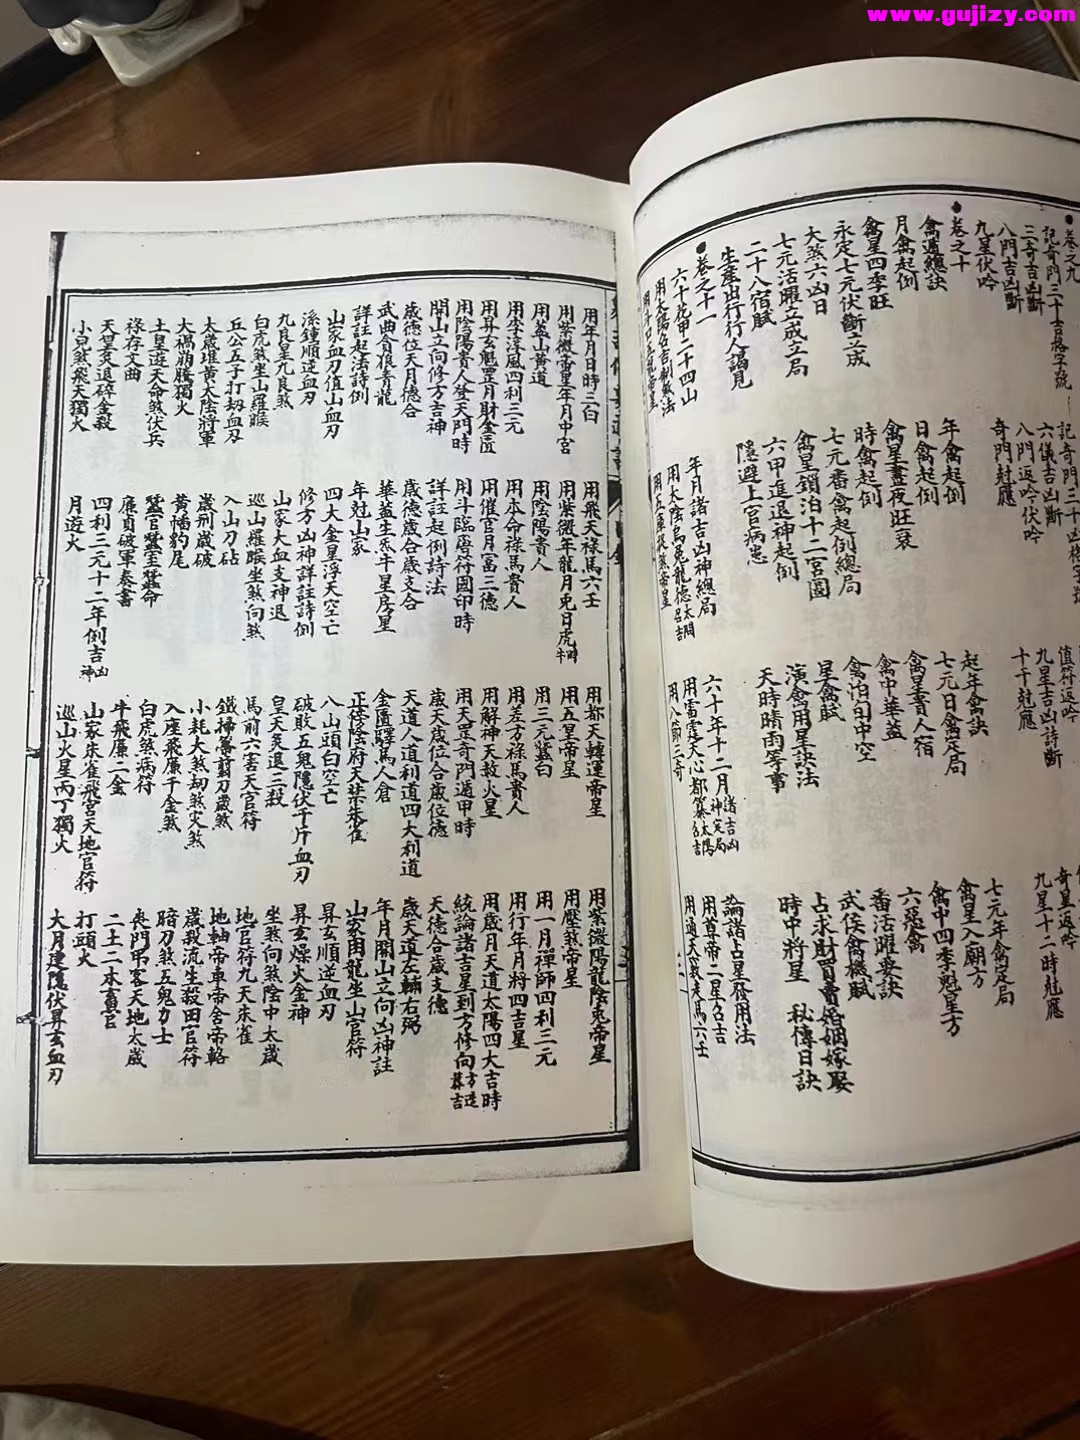 www.gujizy.com
卷之九
記奇門三十吉格字號 記奇門三十凶格
三奇吉凶斷 六儀吉凶斷 值符返吟
八門吉凶斷 八門返吟伏吟 九星吉凶詩斷 奇星返吟
九星伏吟 奇門尅應 十干尅應 九星十二時尅應
卷之十
禽遁總訣 年禽起倒 起年禽訣 七元年禽定局
月禽起倒 日禽起倒 七元日禽定局 禽星入廟方
禽星四季旺 禽星晝夜旺衰 禽星書人宿 禽中四季魁星方
永定七元伏斷立成 時禽起倒 禽中華蓋 六張禽
大煞六凶日 七元番禽起倒總局 禽怕旬中空 番活曜要訣
七元活曜立成立局 禽星鎖泊十二宮圖 星禽賦 武侯禽機賦
二十八宿賦 六甲進退神起倒 演禽用星訣法 占求財買賣婚姻嫁娶
生產出行行人謁見 隱避上官病患 天時晴雨等事 時中將星 秘傳日訣
卷之十一
六十花甲二十四山 年月諸吉凶神總局 六十年十二月諸吉凶神定局 論諸占星發用法
用太陽名吉制煞法 用太陰烏兔龍德太陽名吉 用雷霆天心都纂太陽名吉 用尊帝二星名吉
用八節三奇 用通天竅走馬六壬
用年月日時三白 用飛天祿馬六壬 用都天轉運帝星 用紫微陽龍陰兔帝星
用紫微帝星年月中宮 用紫微年龍月兔日虎時牛 用五皇帝星 用壓煞帝星
用蓋山黃道 用陰陽貴人 用三元蠶白 用一月禪師四利三元
用李淳風四利三元 用本命祿馬貴人 用差方祿馬貴人 用行年月將四吉星
用昇玄魁罡月財金匱 用催官月富三德 用解神天赦火星 用歲月天道太陽四大吉時
用陰陽貴人登天門時 用斗臨唇符國印時 用天罡奇門遁甲時 統論諸吉星到方修向方造葬吉
開山立向修方吉神 詳註起倒詩法 歲天歲位合歲位德 天德合歲支德
歲德位天月德合 歲德歲合歲支合 天道人道利道四大利道 歲天道左輔右弼
武曲貪狼青龍 華蓋生炁牛星房星 金匱驛馬人倉 年月開山立向凶神註
詳註起法詩例 年尅山家 正陰府天禁朱雀 山家困龍坐山官符
山家血刃值山血刃 四大金星浮天空亡 八山頭白空亡 昇玄順逆血刃
滌鍾順逆血刃 修方凶神詳註詩例 破敗五鬼隱伏千斤血刃 昇玄燥火金神
九良星九良煞 山家大血支神退 皇天炙退三殺 坐煞向煞陰中太歲
白虎煞坐山羅睺 巡山羅睺坐煞向煞 馬前六害天官符 地官符九天朱雀
丘公五子打劫血刃 入山刀砧 鐵掃箒剪刀歲煞 地軸帝車帝舍帝輅
太歲堆黃太陰將軍 歲刑歲破 小耗大煞劫煞災煞 歲殺流生殺田官符
大禍崩騰獨火 黃幡豹尾 入座飛廉千金煞 暗刀煞五鬼力士
土皇遊天命煞伏兵 蠶官蠶室蠶命 白虎煞病符 喪門弔客天地太歲
祿存文曲 廉貞破軍奏書 牛飛廉二金 二土二木直官
天罡炙退碎金殺 四利三元十二年倒吉凶神 山家朱雀飛宮天地官符 打頭火
小兒煞飛天獨火 月遊火 巡山火星丙丁獨火 大月建隱伏昇玄血刃